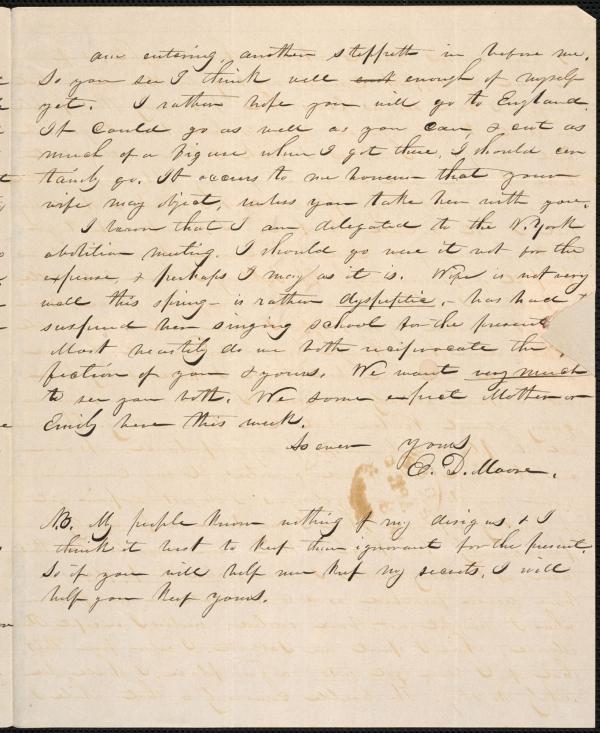 am entering, another steppeth in before me.
So you see I think well enough of myself
yet. I rather hope you will go to England.
If I could go as well as you can, & cut as
much of a figure when I got there, I should cer
tainly go. It occurs to me however that your
wife may object, unless you take her with you.
I learn that I am delegated to the N. York
abolition meeting. I should go were it not for the
expense, & perhaps I may as it is. Wife is not very
well this spring - is rather dyspeptic, - has had t
suspend her singing school for the present
Most heartily do we both reciprocate the
fection of you & yours. We want very much
to see you both. We some expect Mother or
Emily here this week.
As ever yours
E. D. Moore.
N.B. My people know nothing of my designs & I
think it best to keep them ignorant for the present.
So if you will help me keep my secrets, I will
help you keep yours.